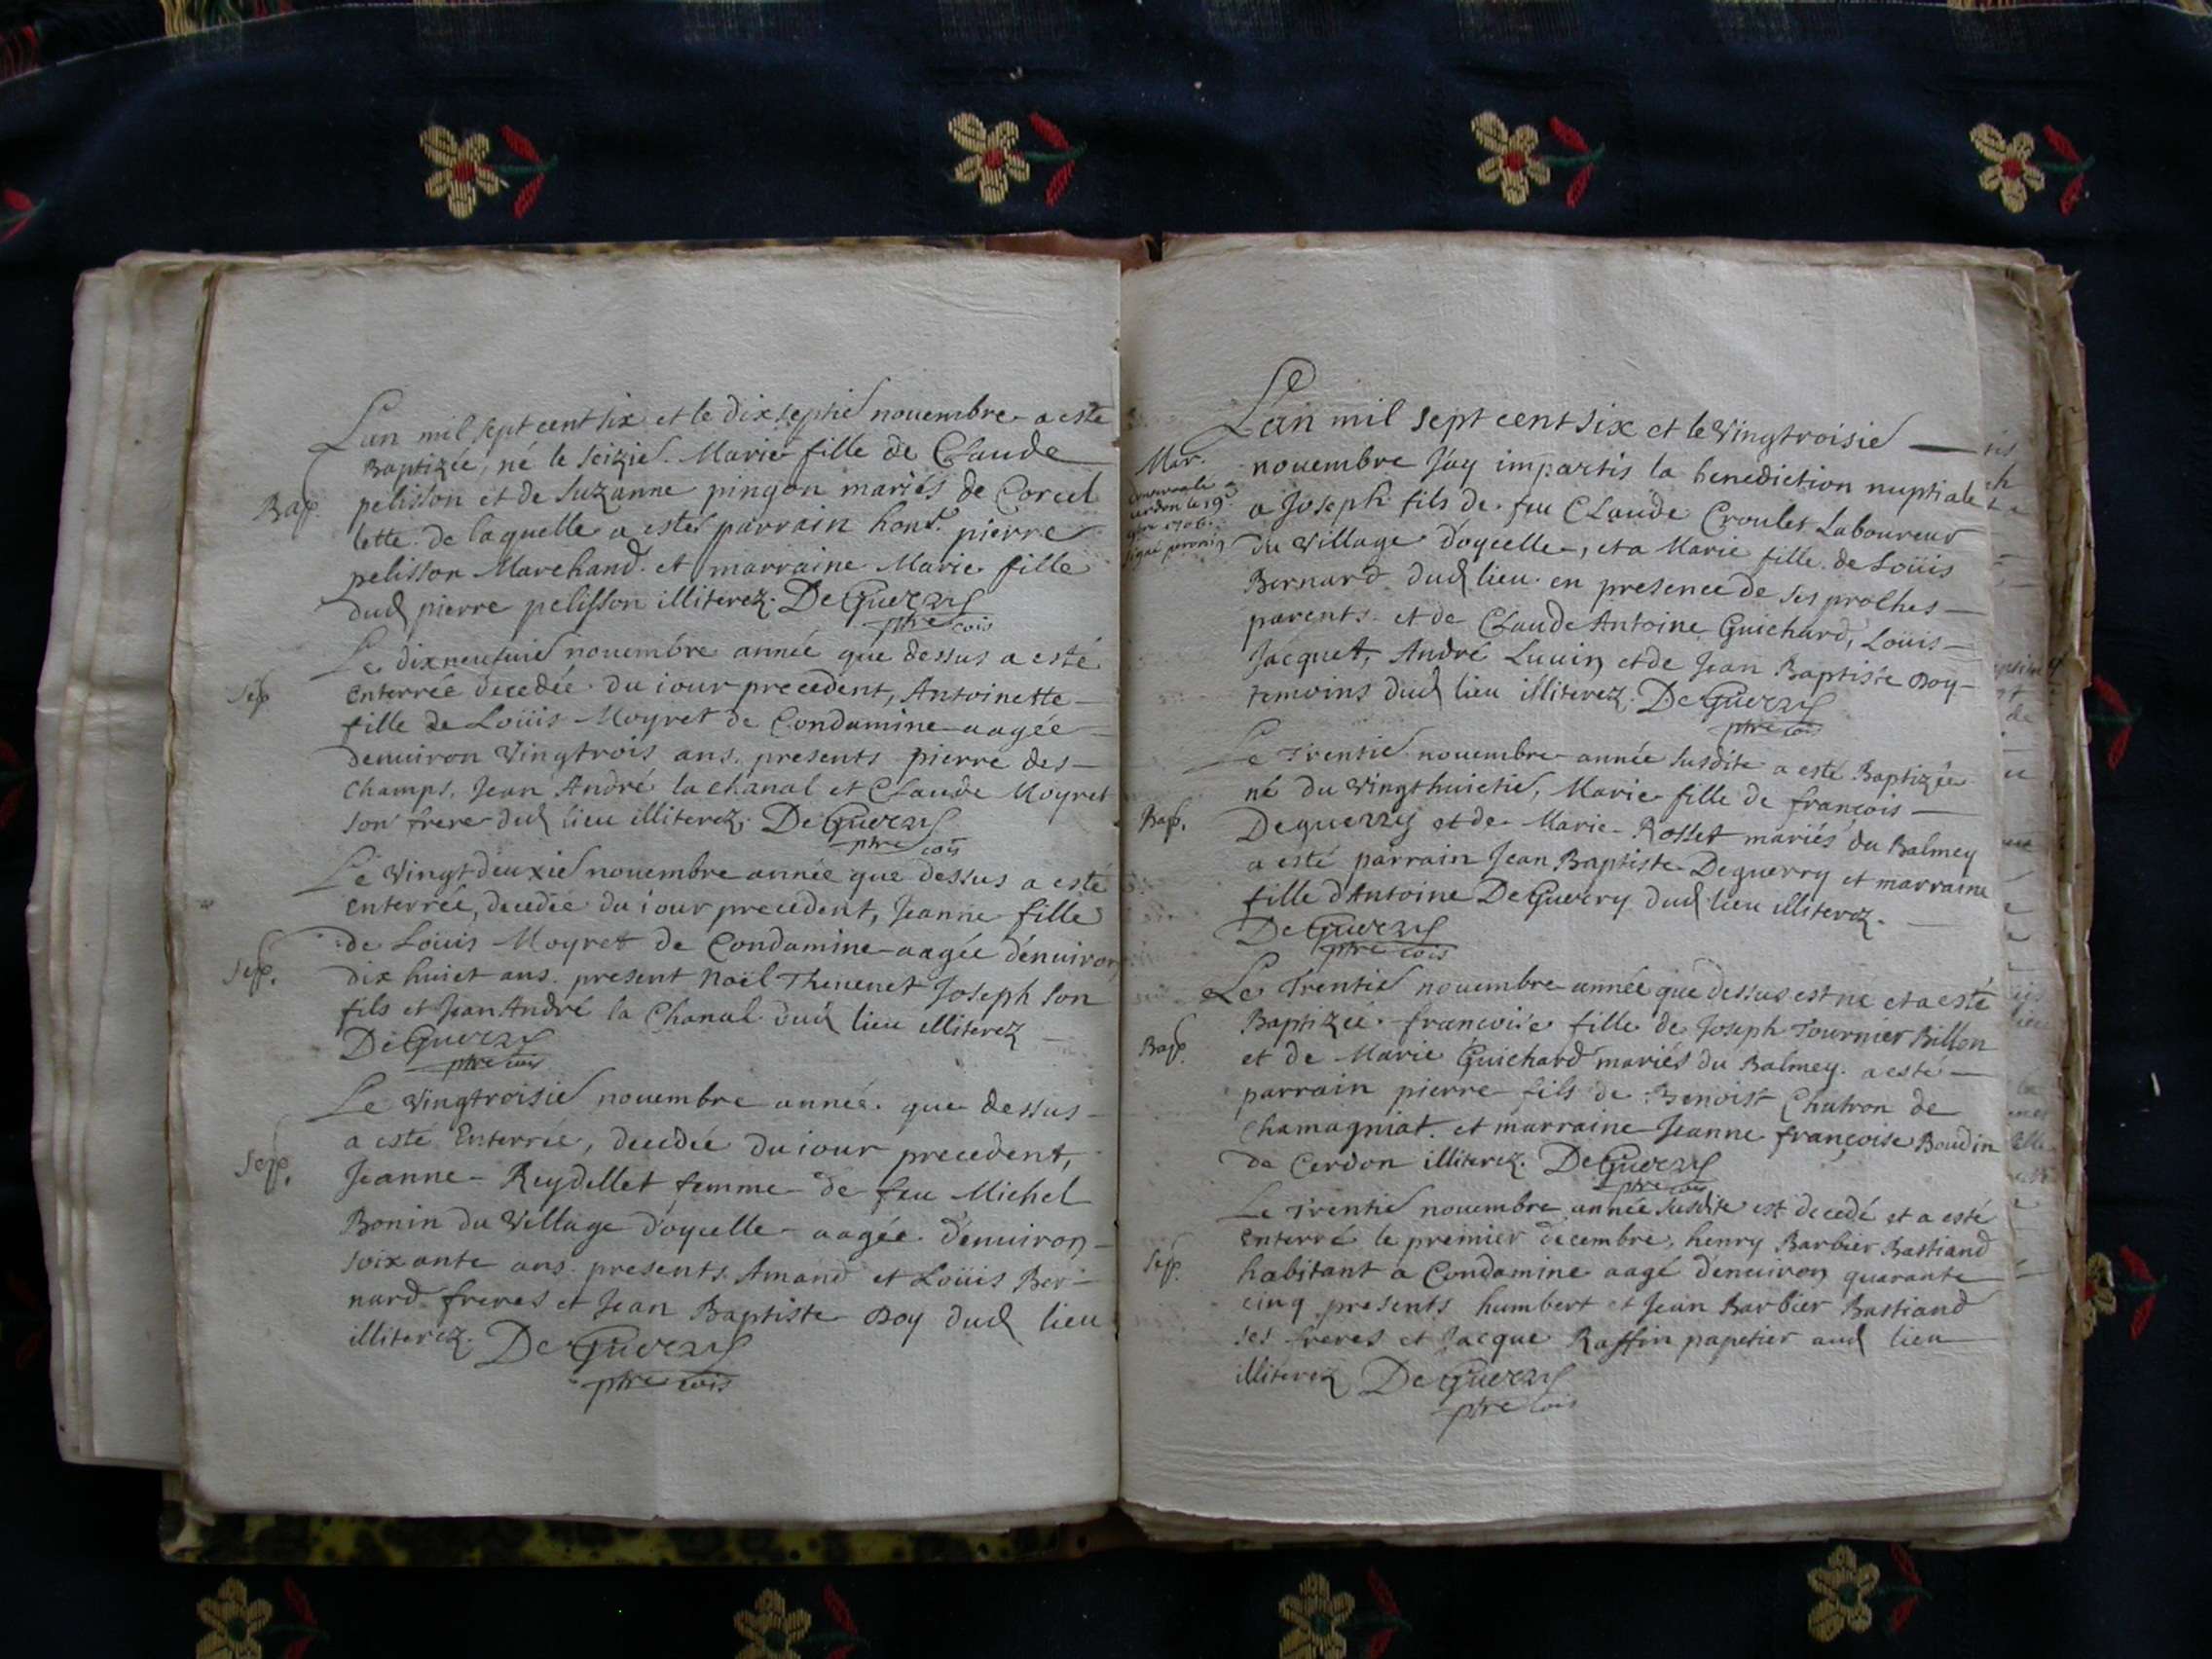 L'an mil sept cent six et le dix septie novembre a esté
Baptizée, né le seizie. Marie fille de Claude
Bap. pelisson et de Suzanne pingon mariés de Corcel
lette de laquelle a estes parrain hon. pierre
pelisson Marchand et marraine Marie fille
dud pierre pelisson illiterez. DeGuerry
ptre cois
Le dixneuvuie nouembre année que dessus a esté
Sep enterrée decedée du iour precedent, Antoinette
fille de Loüis Moyret de Condamine aagée
denuiron Vingtrois ans. presents pierre des-
champs, Jean André lachanal et Claude Moyret
son frere dud lieu illiterez. DeGuerry
ptre cois
Le Vingtdeuxie nouembre année que dessus a esté
enterrée, decedée du iour precedent, Jeanne fille
de Loüis Moyret de Condamine aagée d'enuiron
Sep. dix huict ans. present Noël Thenenet Joseph son
fils et Jean André la Chanal dud lieu illiterez
DeGuerry
ptre cois
Le Vingtroisie nouembre année que dessus
a esté Enterrée, decedée du iour precedent,
Sep. Jeanne Reydellet femme de feu Michel
Bonin du Village d'oyselle aagée d'enuiron
soixante ans. presents Amand et Loüis Ber-
nard freres et Jean Baptiste Doy dud lieu
illiterez. DeGuerry
ptre cois
L'an mil sept cent six et le Vingtroisie
Mar. nouembre J'ay impartis la benediction nuptiale
a Joseph fils de feu Claude Croulet Laboureur
le 19e
1706.
signé
du Village d'oycelle, et a Marie fille de Loüis
Bernard dud lieu en presence de ses proches
parents et de Claude Antoine Guichard, Loüis
Jacquet, André Luuin et de Jean Baptiste Doy
temoins dud lieu illiterez. DeGuerry
ptre cois
Le Trentie nouembre année susdite a esté Baptizée
né du Vingthuictie, Marie fille de françois
Bap. Deguerry et de Marie Rosset mariés du Balmey
a esté parrain Jean Baptiste Deguerry et marraine
fille d'Antoine DeGuerry dud lieu illiterez.
DeGuerry
ptre cois
Le Trentie nouembre année que dessus est né et a esté
Baptizée françoise fille de Joseph Tournier Billon
Bap. et de Marie Guichard mariés du Balmey. a esté
parrain pierre fils de Benoist Chatron de
Chamagniat et marraine Jeanne françoise Boudin
de Cerdon illiterez. DeGuerry
ptre cois
Le Trentie nouembre année susdite est decedé et a esté
enterré le premier decembre, henry Barbier Bastiand
Sep. habitant a Condamine aagé d'enuiron quarante
cinq presents humbert et Jean Barbier Bastiand
ses freres et Jacque Raffin papetier aud lieu
illiterez DeGuerry
ptre cois